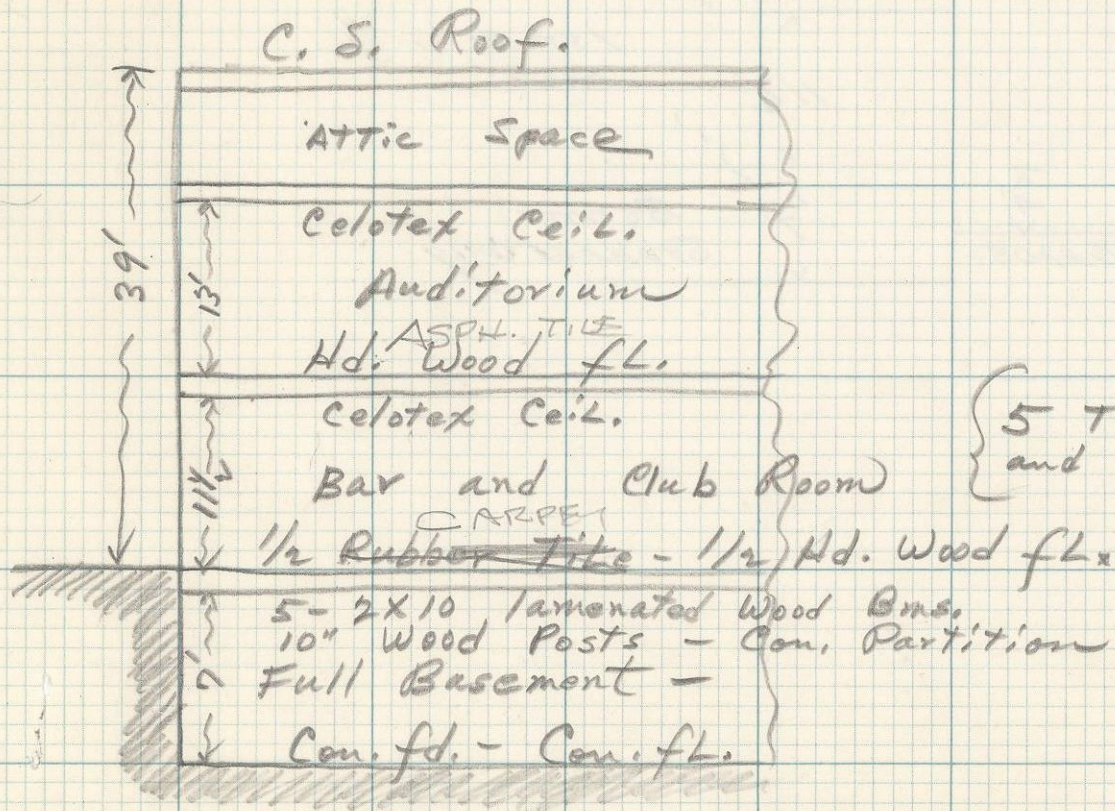 C. S. Roof.
Attic Space
39'
13'
Celotex Ceil.
Auditorium
ASPH. TILE
Hd. Wood fL.
11½'
Celotex Ceil.
Bar and Club Room
{ 5 T
and
CARPET
1/2 Rubber Tile - 1/2 Hd. Wood fL.
7'
5 - 2x10 lamenated Wood Bms.
10" Wood Posts - Con. Partition
Full Basement -
Con. fd. - Con. fL.